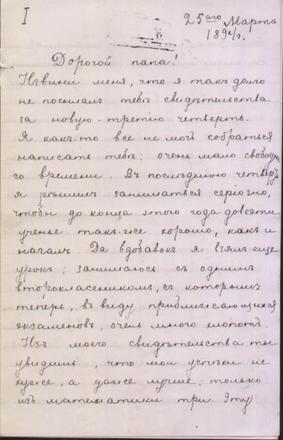 I
25ого Марта
189 г.
Дорогой папа!
Извини меня, что я такъ долго
не посылалъ тебѣ свидѣтельства
за новую третью четверть.
Я какъ-то все не могъ собраться
написать тебѣ: очень мало свободна
го времени. Въ послѣднюю четверть
я рѣшилъ заниматься серіозно,
чтобы до конца этого года довести
ученье такъ-же хорошо, какъ и
началъ. Да вдобавокъ я взялъ еще
урокъ; занимаюсь съ однимъ
второклассникомъ, съ которымъ
теперь, въ виду приближающихся
экзаменовъ, очень много хлопотъ.
Изъ моего свидѣтельства ты
увидишь, что мои успѣхи не
хуже, а даже лучше; только
изъ математики три. Эту